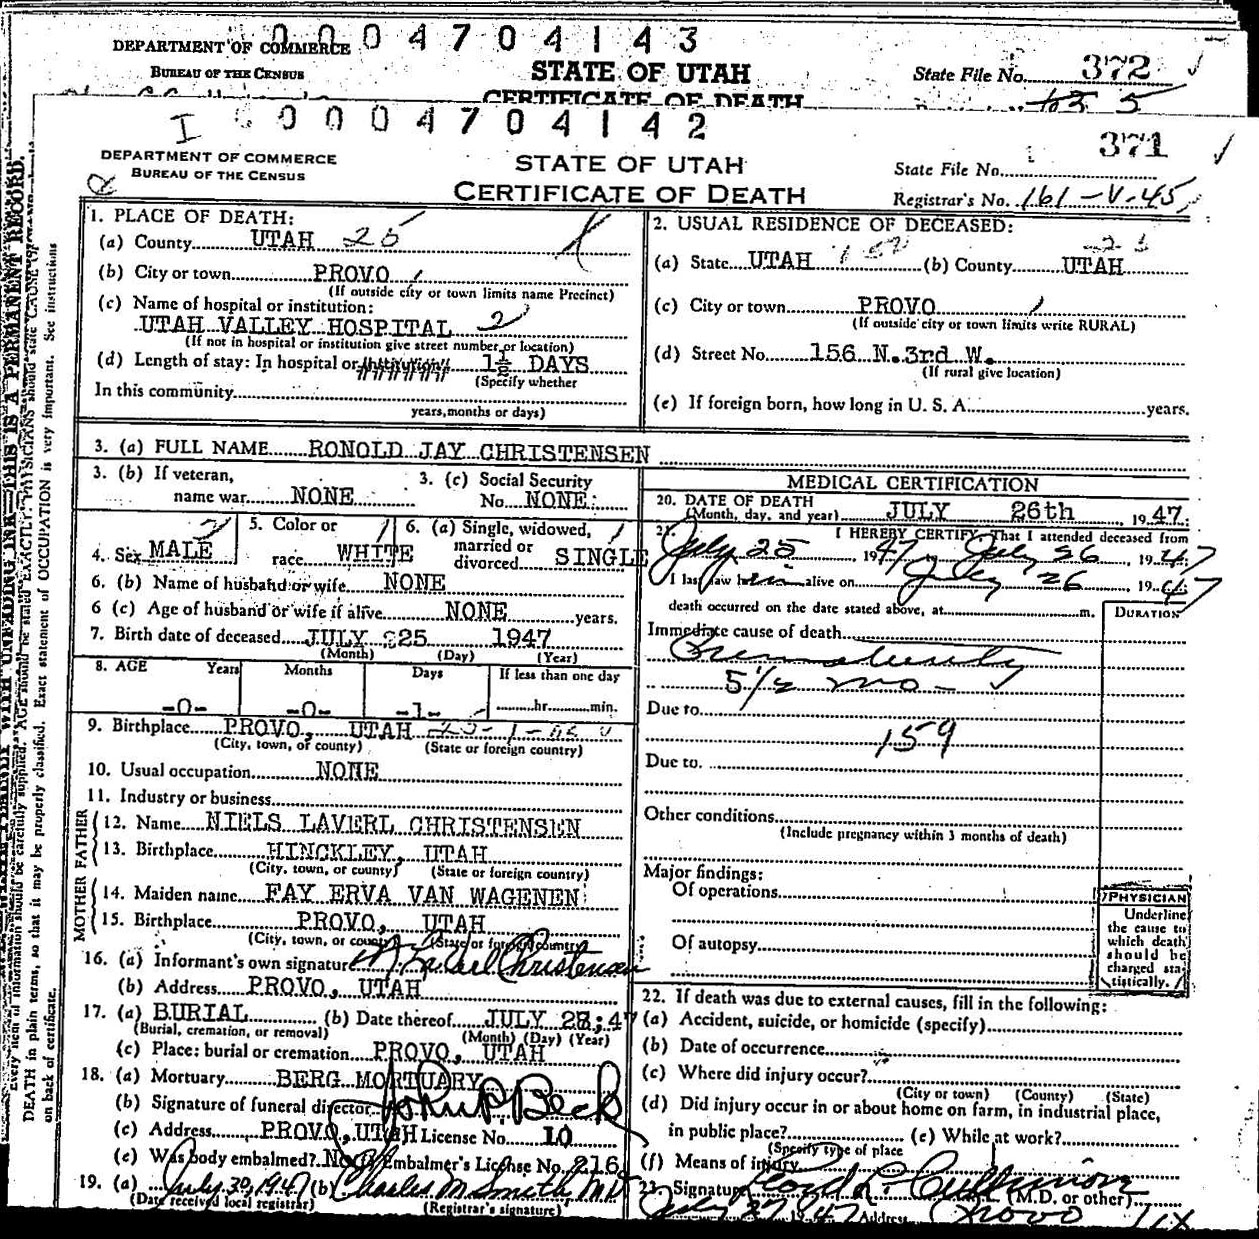 0004704143
DEPARTMENT OF COMMERCE
BUREAU OF THE CENSUS
STATE OF UTAH
CERTIFICATE OF DEATH
State File No. 372
I 0004704142
DEPARTMENT OF COMMERCE
BUREAU OF THE CENSUS
STATE OF UTAH
CERTIFICATE OF DEATH
State File No. 371
Registrar's No. 161-V-45
1. PLACE OF DEATH:
(a) County UTAH 25
(b) City or town PROVO
(If outside city or town limits name Precinct)
(c) Name of hospital or institution:
UTAH VALLEY HOSPITAL 2
(If not in hospital or institution give street number or location)
(d) Length of stay: In hospital or institution 1½ DAYS
(Specify whether
In this community
years, months or days)
2. USUAL RESIDENCE OF DECEASED:
(a) State UTAH (b) County UTAH
(c) City or town PROVO
(If outside city or town limits write RURAL)
(d) Street No. 156 N. 3rd W.
(If rural give location)
(e) If foreign born, how long in U. S. A. years.
3. (a) FULL NAME RONOLD JAY CHRISTENSEN
3. (b) If veteran, name war NONE
3. (c) Social Security No. NONE
4. Sex MALE
5. Color or race WHITE
6. (a) Single, widowed, married or divorced SINGLE
6. (b) Name of husband or wife NONE
6 (c) Age of husband or wife if alive NONE years.
7. Birth date of deceased JULY 25 1947
(Month) (Day) (Year)
8. AGE Years Months Days If less than one day
-0- -0- -1- hr. min.
9. Birthplace PROVO, UTAH
(City, town, or county) (State or foreign country)
10. Usual occupation NONE
11. Industry or business
FATHER
12. Name NIELS LAVERL CHRISTENSEN
13. Birthplace HINCKLEY, UTAH
(City, town, or county) (State or foreign country)
MOTHER
14. Maiden name FAY ERVA VAN WAGENEN
15. Birthplace PROVO, UTAH
(City, town, or county) (State or foreign country)
16. (a) Informant's own signature N. LaVerl Christensen
(b) Address PROVO, UTAH
17. (a) BURIAL (b) Date thereof JULY 28, 47
(Burial, cremation, or removal) (Month) (Day) (Year)
(c) Place: burial or cremation PROVO, UTAH
18. (a) Mortuary BERG MORTUARY
(b) Signature of funeral director John P. Beck
(c) Address PROVO, UTAH License No. 10
(e) Was body embalmed? No Embalmer's License No. 216
19. (a) July 30, 1947 (b) Charles M. Smith, MD
(Date received local registrar) (Registrar's signature)
MEDICAL CERTIFICATION
20. DATE OF DEATH
(Month, day, and year) JULY 26th 1947
21. I HEREBY CERTIFY, That I attended deceased from
July 25, 1947 July 26, 1947
I last saw him alive on July 26 1947
death occurred on the date stated above, at m.
DURATION
Immediate cause of death
Prematurity
5½ mo-
Due to
159
Due to
Other conditions
(Include pregnancy within 3 months of death)
Major findings:
Of operations
Of autopsy
PHYSICIAN
Underline
the cause to
which death
should be
charged sta-
tistically.
22. If death was due to external causes, fill in the following:
(a) Accident, suicide, or homicide (specify)
(b) Date of occurrence
(c) Where did injury occur?
(City or town) (County) (State)
(d) Did injury occur in or about home on farm, in industrial place,
in public place? (e) While at work?
(Specify type of place
(f) Means of injury
23. Signature Lloyd L. Cullimore (M.D. or other)
July 27 1947 Address Provo
DEATH in plain terms, so that it may be properly classified. Exact statement of OCCUPATION is very important. See instructions
on back of certificate.